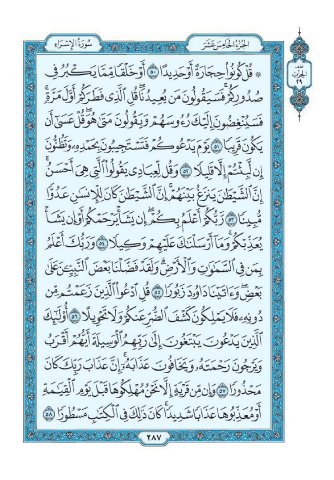 سُورَةُ الإِسْرَاءِ الجُزْءُ الخَامِسَ عَشَرَ
۞ قُلْ كُونُوا۟ حِجَارَةً أَوْ حَدِيدًا ۝٥٠ أَوْ خَلْقًا مِّمَّا يَكْبُرُ فِى
صُدُورِكُمْ فَسَيَقُولُونَ مَن يُعِيدُنَا قُلِ ٱلَّذِى فَطَرَكُمْ أَوَّلَ مَرَّةٍ
فَسَيُنْغِضُونَ إِلَيْكَ رُءُوسَهُمْ وَيَقُولُونَ مَتَىٰ هُوَ قُلْ عَسَىٰٓ أَن
يَكُونَ قَرِيبًا ۝٥١ يَوْمَ يَدْعُوكُمْ فَتَسْتَجِيبُونَ بِحَمْدِهِۦ وَتَظُنُّونَ
إِن لَّبِثْتُمْ إِلَّا قَلِيلًا ۝٥٢ وَقُل لِّعِبَادِى يَقُولُوا۟ ٱلَّتِى هِىَ أَحْسَنُ
إِنَّ ٱلشَّيْطَٰنَ يَنزَغُ بَيْنَهُمْ إِنَّ ٱلشَّيْطَٰنَ كَانَ لِلْإِنسَٰنِ عَدُوًّا
مُّبِينًا ۝٥٣ رَّبُّكُمْ أَعْلَمُ بِكُمْ إِن يَشَأْ يَرْحَمْكُمْ أَوْ إِن يَشَأْ
يُعَذِّبْكُمْ وَمَآ أَرْسَلْنَٰكَ عَلَيْهِمْ وَكِيلًا ۝٥٤ وَرَبُّكَ أَعْلَمُ
بِمَن فِى ٱلسَّمَٰوَٰتِ وَٱلْأَرْضِ وَلَقَدْ فَضَّلْنَا بَعْضَ ٱلنَّبِيِّـۧنَ عَلَىٰ
بَعْضٍ وَءَاتَيْنَا دَاوُۥدَ زَبُورًا ۝٥٥ قُلِ ٱدْعُوا۟ ٱلَّذِينَ زَعَمْتُم مِّن
دُونِهِۦ فَلَا يَمْلِكُونَ كَشْفَ ٱلضُّرِّ عَنكُمْ وَلَا تَحْوِيلًا ۝٥٦ أُو۟لَٰٓئِكَ
ٱلَّذِينَ يَدْعُونَ يَبْتَغُونَ إِلَىٰ رَبِّهِمُ ٱلْوَسِيلَةَ أَيُّهُمْ أَقْرَبُ
وَيَرْجُونَ رَحْمَتَهُۥ وَيَخَافُونَ عَذَابَهُۥٓ إِنَّ عَذَابَ رَبِّكَ كَانَ
مَحْذُورًا ۝٥٧ وَإِن مِّن قَرْيَةٍ إِلَّا نَحْنُ مُهْلِكُوهَا قَبْلَ يَوْمِ ٱلْقِيَٰمَةِ
أَوْ مُعَذِّبُوهَا عَذَابًا شَدِيدًا كَانَ ذَٰلِكَ فِى ٱلْكِتَٰبِ مَسْطُورًا ۝٥٨
٢٨٧